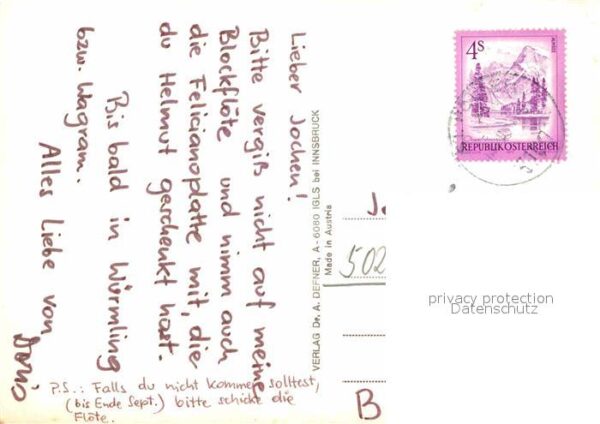 Lieber Jochen!
Bitte vergiß nicht auf meine
Blockflöte und nimm auch
die Felicianoplatte mit, die
du Helmut geschenkt hast.
Bis bald in Würmling
bzw. Wagram.
Alles Liebe von
Doris
P.S.: Falls du nicht kommen solltest,
(bis Ende Sept.) bitte schicke die
Flöte.
VERLAG Dr. A. DEFNER, A - 6080 IGLS bei INNSBRUCK
Made in Austria
4S
ALMSEE
REPUBLIK ÖSTERREICH
502
B
privacy protection
Datenschutz